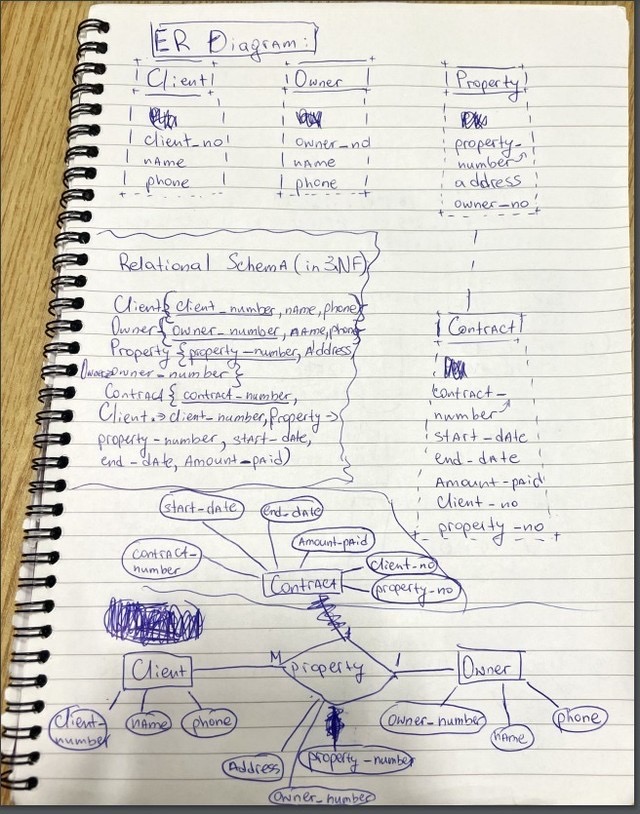 ER Diagram:
Client
client_no
name
phone
Owner
owner_no
name
phone
Property
property_
number
address
owner_no
Relational Schema (in 3NF)
Client { client_number, name, phone}
Owner { owner_number, name, phone}
Property { property_number, Address
owner_number }
Contract { contract_number,
Client → client_number, Property →
property_number, start_date,
end_date, Amount_paid)
Contract
contract_
number
start_date
end_date
Amount_paid
Client_no
property_no
start_date
end_date
Amount_paid
contract_
number
client_no
Contract
property_no
Client
M
property
1
Owner
Client_
number
name
phone
Owner_number
name
phone
Address
property_number
owner_number